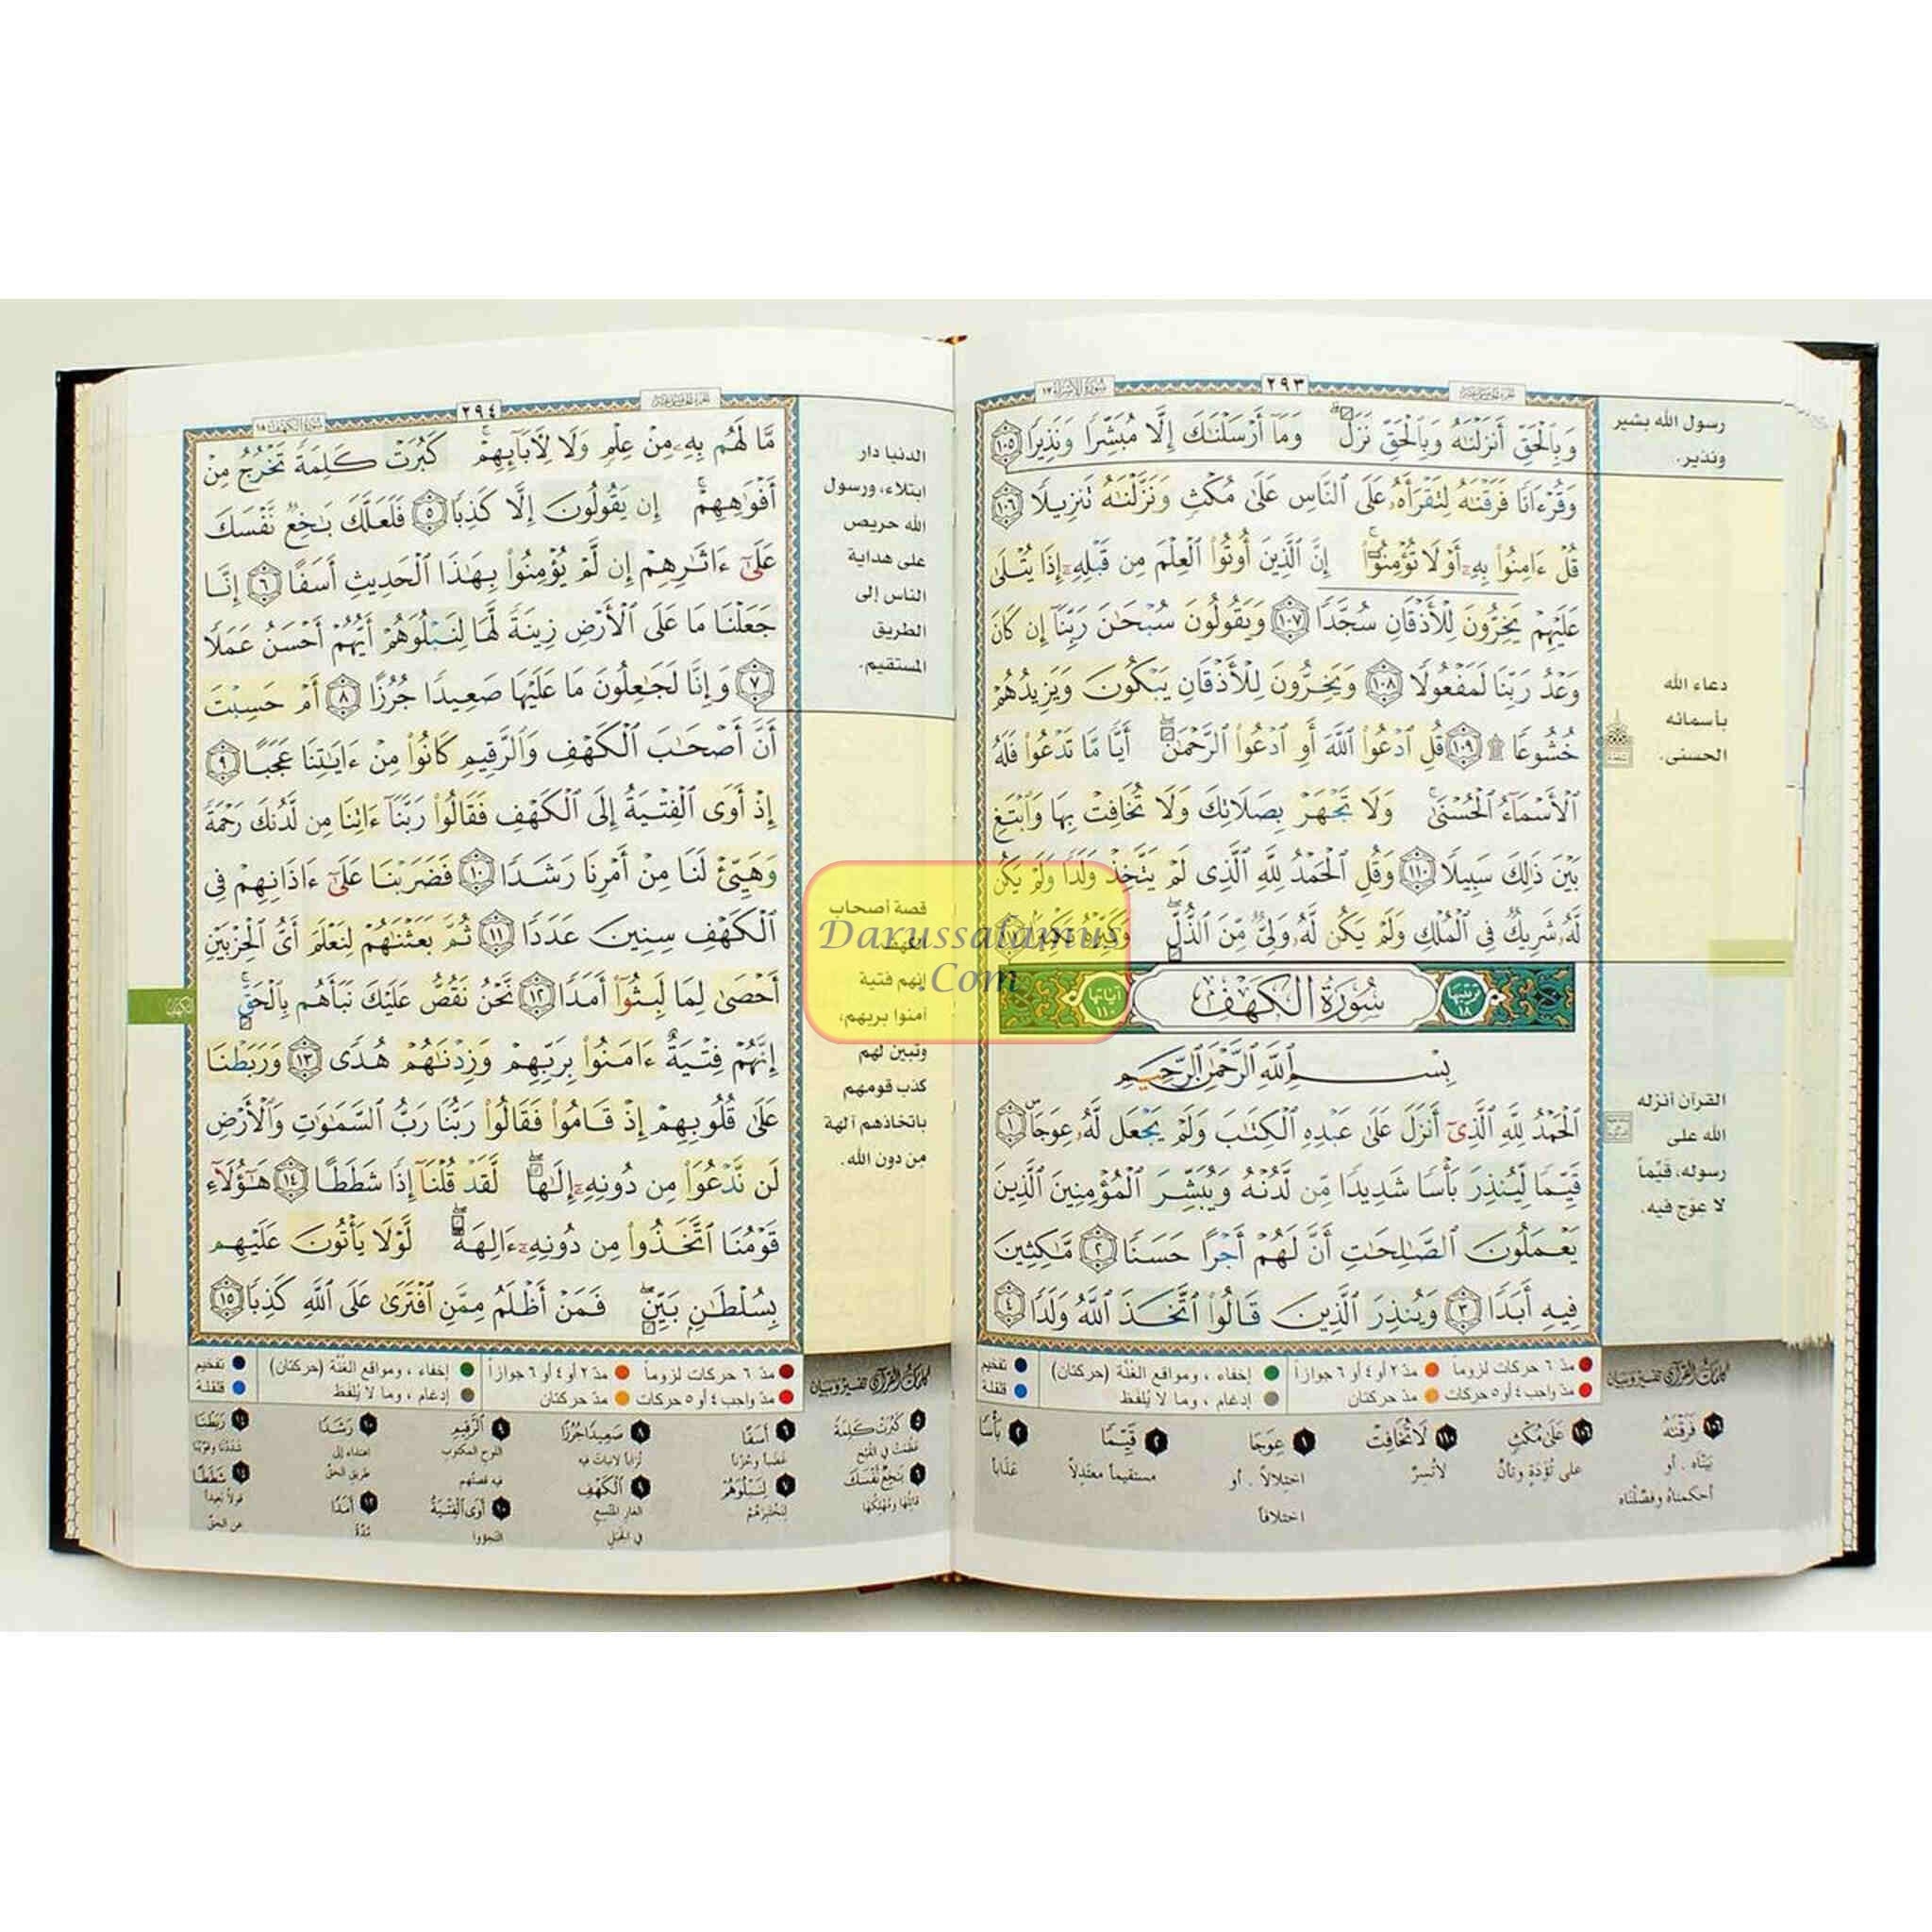 سورة الإسراء ١٧
٢٩٣
الجزء الخامس عشر
وَبِٱلْحَقِّ أَنزَلْنَٰهُ وَبِٱلْحَقِّ نَزَلَ ۗ وَمَآ أَرْسَلْنَٰكَ إِلَّا مُبَشِّرًا وَنَذِيرًا ١٠٥
وَقُرْءَانًا فَرَقْنَٰهُ لِتَقْرَأَهُۥ عَلَى ٱلنَّاسِ عَلَىٰ مُكْثٍ وَنَزَّلْنَٰهُ تَنزِيلًا ١٠٦
قُلْ ءَامِنُوا۟ بِهِۦٓ أَوْ لَا تُؤْمِنُوٓا۟ ۚ إِنَّ ٱلَّذِينَ أُوتُوا۟ ٱلْعِلْمَ مِن قَبْلِهِۦٓ إِذَا يُتْلَىٰ
عَلَيْهِمْ يَخِرُّونَ لِلْأَذْقَانِ سُجَّدًا ١٠٧ وَيَقُولُونَ سُبْحَٰنَ رَبِّنَآ إِن كَانَ
وَعْدُ رَبِّنَا لَمَفْعُولًا ١٠٨ وَيَخِرُّونَ لِلْأَذْقَانِ يَبْكُونَ وَيَزِيدُهُمْ
خُشُوعًا ۩ ١٠٩ قُلِ ٱدْعُوا۟ ٱللَّهَ أَوِ ٱدْعُوا۟ ٱلرَّحْمَٰنَ ۖ أَيًّا مَّا تَدْعُوا۟ فَلَهُ
ٱلْأَسْمَآءُ ٱلْحُسْنَىٰ ۚ وَلَا تَجْهَرْ بِصَلَاتِكَ وَلَا تُخَافِتْ بِهَا وَٱبْتَغِ
بَيْنَ ذَٰلِكَ سَبِيلًا ١١٠ وَقُلِ ٱلْحَمْدُ لِلَّهِ ٱلَّذِى لَمْ يَتَّخِذْ وَلَدًا وَلَمْ يَكُن
لَّهُۥ شَرِيكٌ فِى ٱلْمُلْكِ وَلَمْ يَكُن لَّهُۥ وَلِىٌّ مِّنَ ٱلذُّلِّ ۖ وَكَبِّرْهُ تَكْبِيرًۢا ١١١
ترتيبها ١٨
سُورَةُ الكَهْفِ
آياتها ١١٠
بِسْمِ ٱللَّهِ ٱلرَّحْمَٰنِ ٱلرَّحِيمِ
ٱلْحَمْدُ لِلَّهِ ٱلَّذِىٓ أَنزَلَ عَلَىٰ عَبْدِهِ ٱلْكِتَٰبَ وَلَمْ يَجْعَل لَّهُۥ عِوَجَاۜ ١
قَيِّمًا لِّيُنذِرَ بَأْسًا شَدِيدًا مِّن لَّدُنْهُ وَيُبَشِّرَ ٱلْمُؤْمِنِينَ ٱلَّذِينَ
يَعْمَلُونَ ٱلصَّٰلِحَٰتِ أَنَّ لَهُمْ أَجْرًا حَسَنًا ٢ مَّٰكِثِينَ
فِيهِ أَبَدًا ٣ وَيُنذِرَ ٱلَّذِينَ قَالُوا۟ ٱتَّخَذَ ٱللَّهُ وَلَدًا ٤
رسول الله بشير
ونذير.
دعاء الله
بأسمائه
الحسنى.
القرآن أنزله
الله على
رسوله، قَيِّماً
لا عوج فيه.
كلمات القرآن تفسير وبيان
مدّ ٦ حركات لزوماً
مدّ ٢ أو ٤ أو ٦ جوازاً
إخفاء ، ومواقع الغُنَّة (حركتان)
تفخيم
مدّ واجب ٤ أو ٥ حركات
مدّ حركتان
إدغام ، وما لا يُلفَظ
قلقلة
١٠٦ فَرَقْنَٰهُ
بيَّنَّاه . أو
أحكمناهُ وفصَّلْناه
١٠٦ عَلَىٰ مُكْثٍ
على تُؤَدَةٍ وتأنٍّ
١١٠ لَا تُخَافِتْ
لا تُسِرَّ
١ عِوَجَا
اختلالاً . أو
اختلافاً
٢ قَيِّمًا
مستقيماً معتدلاً
٢ بَأْسًا
عَذَاباً
سورة الكهف ١٨
٢٩٤
الجزء الخامس عشر
مَّا لَهُم بِهِۦ مِنْ عِلْمٍ وَلَا لِءَابَآئِهِمْ ۚ كَبُرَتْ كَلِمَةً تَخْرُجُ مِنْ
أَفْوَٰهِهِمْ ۚ إِن يَقُولُونَ إِلَّا كَذِبًا ٥ فَلَعَلَّكَ بَٰخِعٌ نَّفْسَكَ
عَلَىٰٓ ءَاثَٰرِهِمْ إِن لَّمْ يُؤْمِنُوا۟ بِهَٰذَا ٱلْحَدِيثِ أَسَفًا ٦ إِنَّا
جَعَلْنَا مَا عَلَى ٱلْأَرْضِ زِينَةً لَّهَا لِنَبْلُوَهُمْ أَيُّهُمْ أَحْسَنُ عَمَلًا
٧ وَإِنَّا لَجَٰعِلُونَ مَا عَلَيْهَا صَعِيدًا جُرُزًا ٨ أَمْ حَسِبْتَ
أَنَّ أَصْحَٰبَ ٱلْكَهْفِ وَٱلرَّقِيمِ كَانُوا۟ مِنْ ءَايَٰتِنَا عَجَبًا ٩
إِذْ أَوَى ٱلْفِتْيَةُ إِلَى ٱلْكَهْفِ فَقَالُوا۟ رَبَّنَآ ءَاتِنَا مِن لَّدُنكَ رَحْمَةً
وَهَيِّئْ لَنَا مِنْ أَمْرِنَا رَشَدًا ١٠ فَضَرَبْنَا عَلَىٰٓ ءَاذَانِهِمْ فِى
ٱلْكَهْفِ سِنِينَ عَدَدًا ١١ ثُمَّ بَعَثْنَٰهُمْ لِنَعْلَمَ أَىُّ ٱلْحِزْبَيْنِ
أَحْصَىٰ لِمَا لَبِثُوٓا۟ أَمَدًا ١٢ نَّحْنُ نَقُصُّ عَلَيْكَ نَبَأَهُم بِٱلْحَقِّ ۚ
إِنَّهُمْ فِتْيَةٌ ءَامَنُوا۟ بِرَبِّهِمْ وَزِدْنَٰهُمْ هُدًى ١٣ وَرَبَطْنَا
عَلَىٰ قُلُوبِهِمْ إِذْ قَامُوا۟ فَقَالُوا۟ رَبُّنَا رَبُّ ٱلسَّمَٰوَٰتِ وَٱلْأَرْضِ
لَن نَّدْعُوَا۟ مِن دُونِهِۦٓ إِلَٰهًا ۖ لَّقَدْ قُلْنَآ إِذًا شَطَطًا ١٤ هَٰٓؤُلَآءِ
قَوْمُنَا ٱتَّخَذُوا۟ مِن دُونِهِۦٓ ءَالِهَةً ۖ لَّوْلَا يَأْتُونَ عَلَيْهِم
بِسُلْطَٰنٍۭ بَيِّنٍ ۖ فَمَنْ أَظْلَمُ مِمَّنِ ٱفْتَرَىٰ عَلَى ٱللَّهِ كَذِبًا ١٥
الدنيا دار
ابتلاء، ورسول
الله حريص
على هداية
الناس إلى
الطريق
المستقيم.
قصة أصحاب
الكهف
إنهم فتية
آمنوا بربهم،
وتبين لهم
كذب قومهم
باتخاذهم آلهة
من دون الله.
الكهف
كلمات القرآن تفسير وبيان
مدّ ٦ حركات لزوماً
مدّ ٢ أو ٤ أو ٦ جوازاً
إخفاء ، ومواقع الغُنَّة (حركتان)
تفخيم
مدّ واجب ٤ أو ٥ حركات
مدّ حركتان
إدغام ، وما لا يُلفَظ
قلقلة
٥ كَبُرَتْ كَلِمَةً
عَظُمَتْ في القُبْح
٦ بَٰخِعٌ نَّفْسَكَ
قاتِلُها ومُهْلِكُها
٦ أَسَفًا
غضَباً وحُزْناً
٧ لِنَبْلُوَهُمْ
لِنَخْتَبِرَهُمْ
٨ صَعِيدًا جُرُزًا
تُراباً لا نبات فيه
٩ ٱلْكَهْفِ
الغار المتَّسِع
في الجَبَل
٩ ٱلرَّقِيمِ
اللوح المكتوب
فيه قصتُهم
١٠ أَوَى ٱلْفِتْيَةُ
التجؤوا
١٠ رَشَدًا
اهتداء إلى
طريق الحقِّ
١٢ أَمَدًا
مُدَّةً
١٤ رَبَطْنَا
شدَدْنا وقوَّيْنا
١٤ شَطَطًا
قولاً بعيداً
عن الحقّ
Darussalamus
.Com